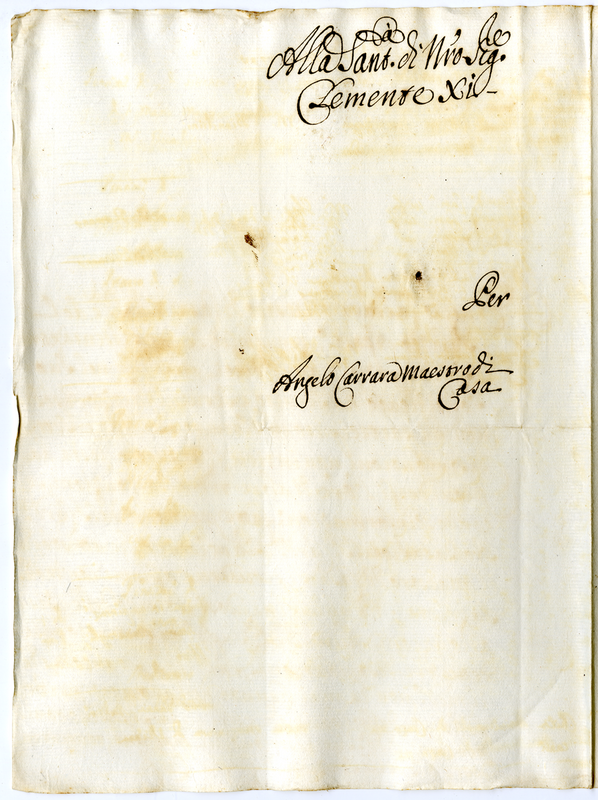 Alla Sant.à di Nro Sig.re
Clemente Xi-
Per
Angelo Carrara Maestro di
Casa